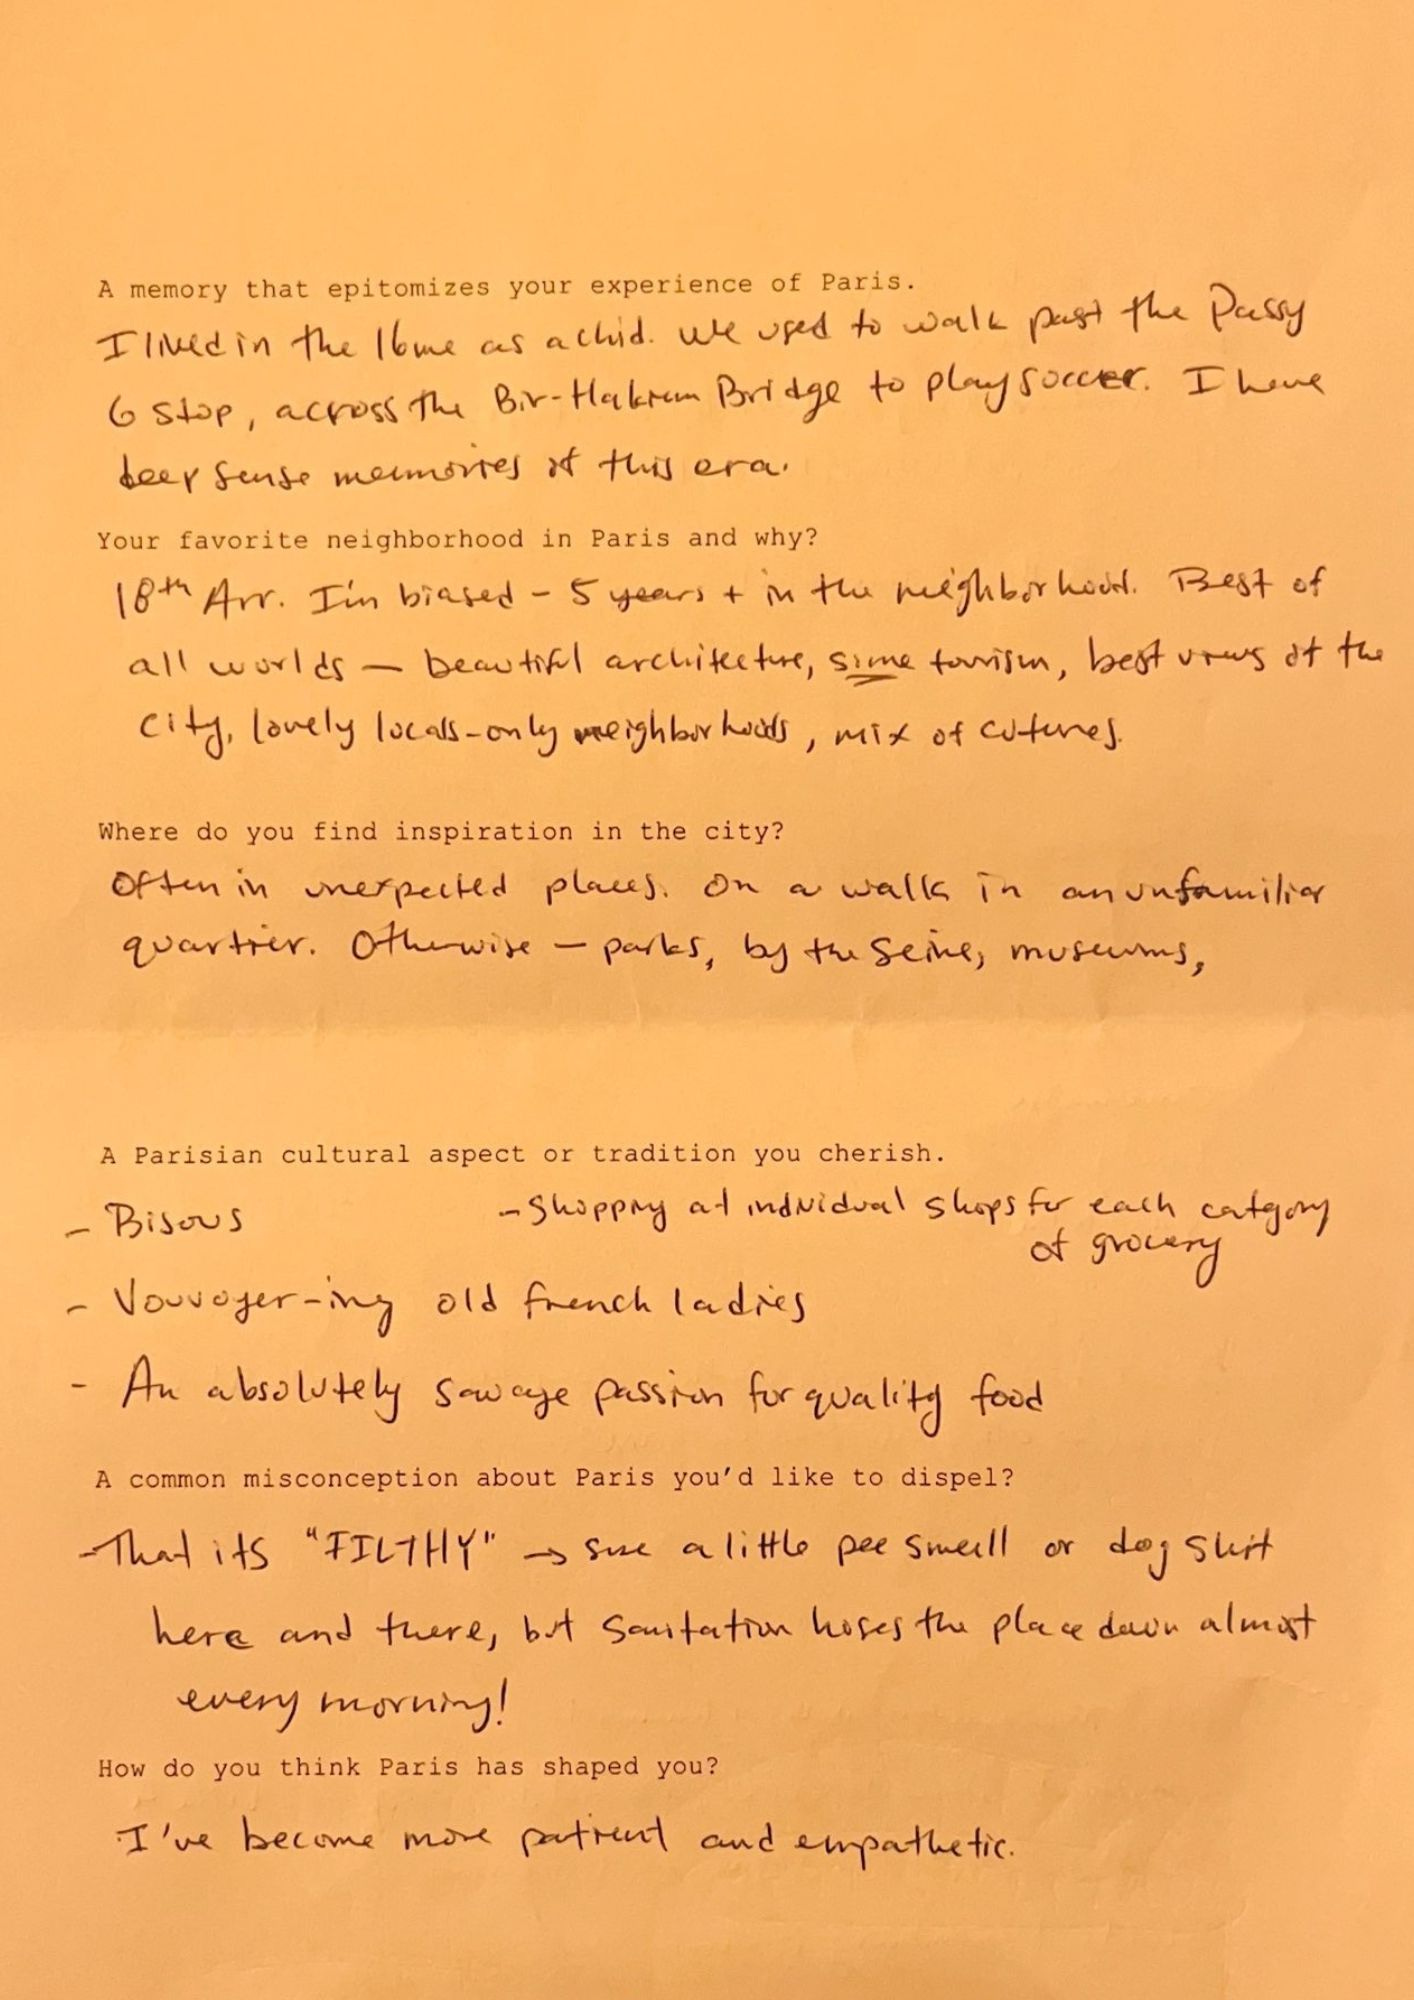 A memory that epitomizes your experience of Paris.
I lived in the 16me as a chid. We used to walk past the Passy
6 stop, across the Bir-Hakeim Bridge to play soccer. I have
deep sense memories of this era.
Your favorite neighborhood in Paris and why?
18th Arr. I'm biased - 5 years + in the neighborhood. Best of
all worlds — beautiful architecture, some tourism, best views of the
city, lovely locals-only neighborhoods, mix of cultures.
Where do you find inspiration in the city?
Often in unexpected places. On a walk in an unfamiliar
quartier. Otherwise — parks, by the Seine, museums,
A Parisian cultural aspect or tradition you cherish.
- Bisous
- Shopping at individual shops for each category
of grocery
- Vouvoyer-ing old french ladies
- An absolutely savage passion for quality food
A common misconception about Paris you'd like to dispel?
- That its "FILTHY" → sure a little pee smell or dog shit
here and there, but sanitation hoses the place down almost
every morning!
How do you think Paris has shaped you?
I've become more patient and empathetic.